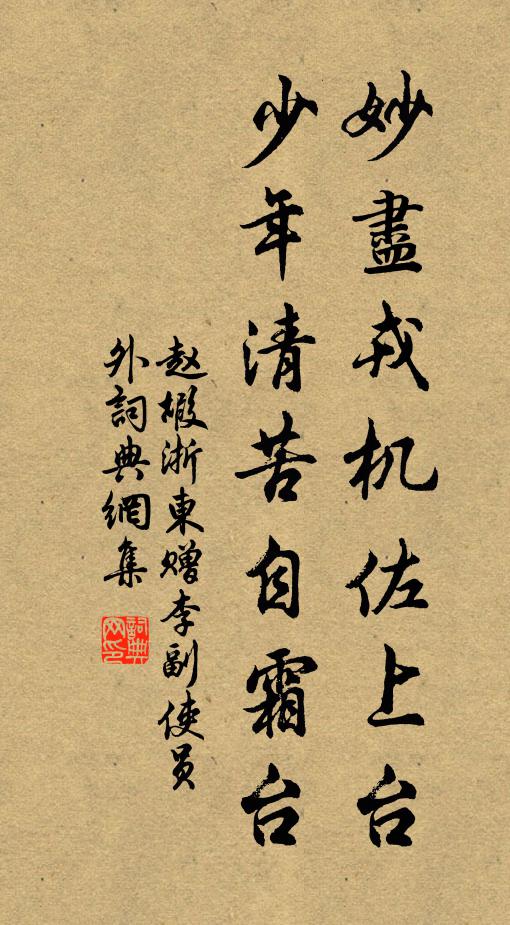 妙盡戎机佐上台
少年清苦自霜台
赵嘏浙東赠李副使员
外詞典網集
詞典网印